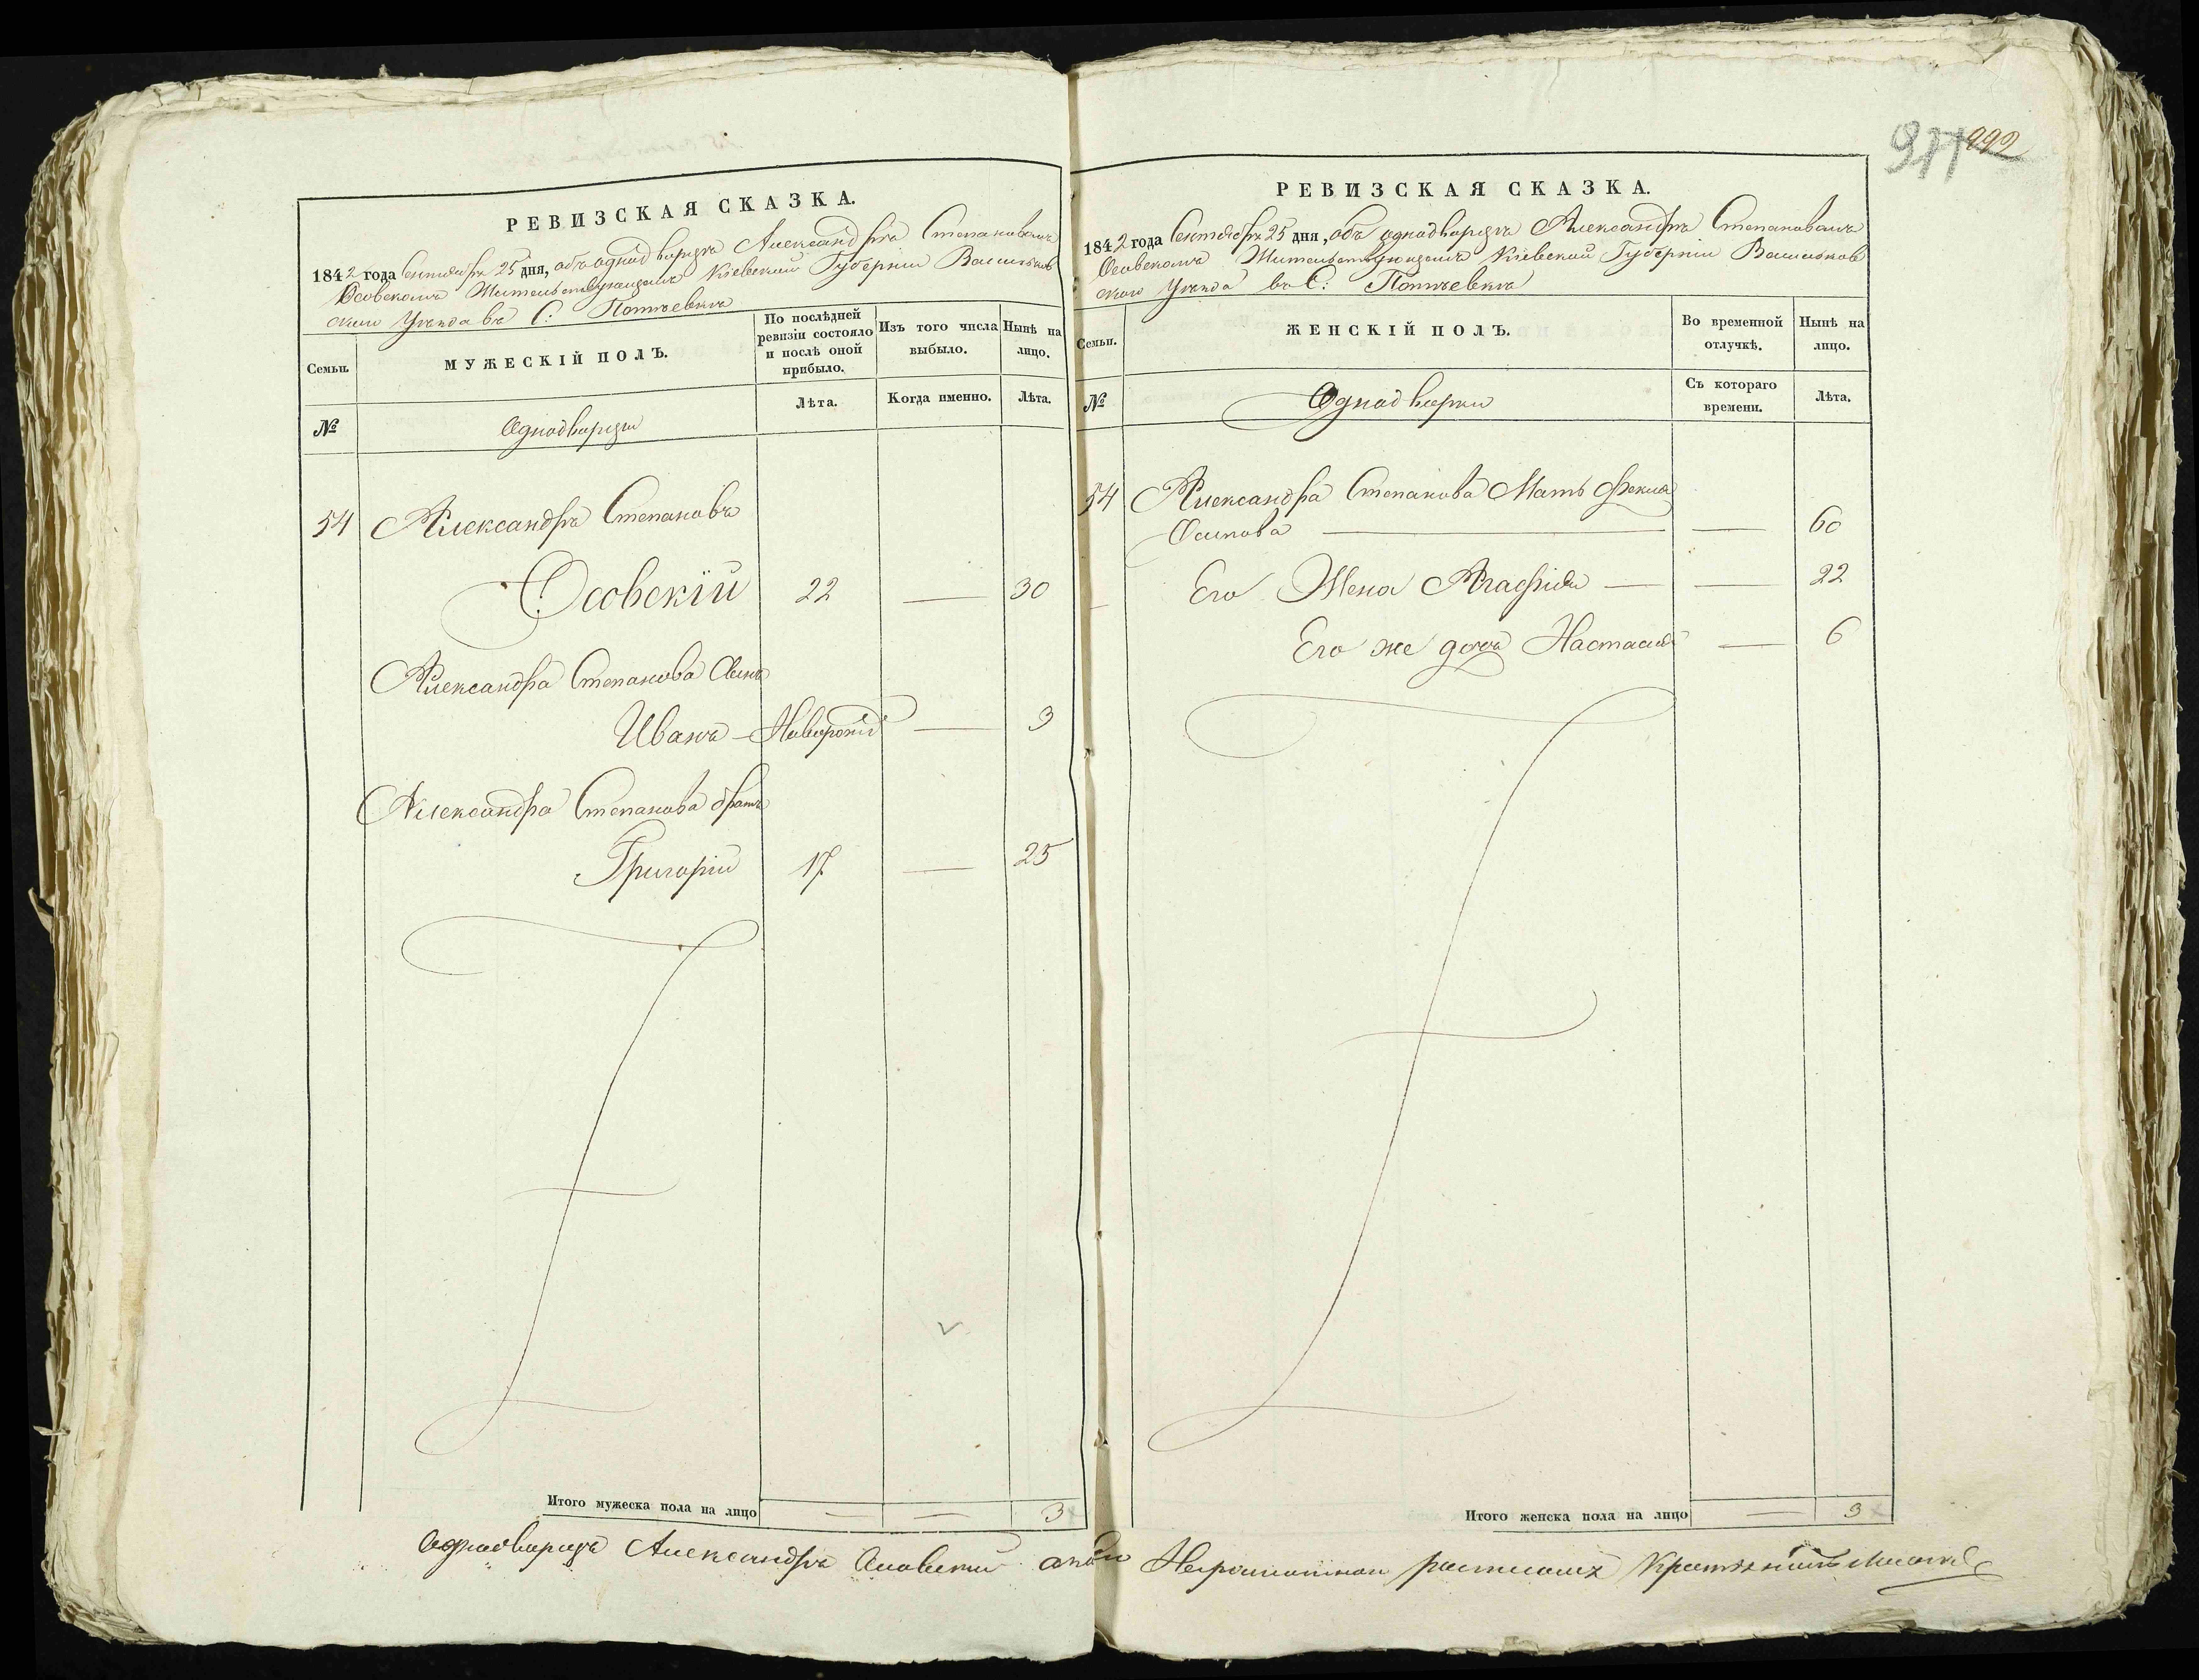 РЕВИЗСКАЯ СКАЗКА.
1842 года Сентября 25 дня, объ однодворцѣ Александрѣ Степановомъ
Осовскомъ Жительствующемъ Кіевской Губерніи Васильков
скаго Уѣзда въ С: Потіевкѣ
Семьи.
МУЖЕСКІЙ ПОЛЪ.
По послѣдней ревизіи состояло и послѣ оной прибыло.
Изъ того числа выбыло.
Нынѣ на лицо.
№
Однодворцы
Лѣта.
Когда именно.
Лѣта.
54 Александръ Степановъ
Осовскій 22 — 30
Александра Степанова Сынъ
Иванъ — Новорожд — 3
Александра Степанова братъ
Григорій 17 — 25
Итого мужеска пола на лицо — — 3
Однодворецъ Александръ Осовский
911 992
РЕВИЗСКАЯ СКАЗКА.
1842 года Сентября 25 дня, объ однодворцѣ Александрѣ Степановомъ
Осовскомъ Жительствующемъ Кіевской Губерніи Васильков
скаго Уѣзда въ С: Потіевкѣ
Семьи.
ЖЕНСКІЙ ПОЛЪ.
Во временной отлучкѣ.
Нынѣ на лицо.
№
Однодворки
Съ котораго времени.
Лѣта.
54 Александра Степанова Мать Фекла
Осипова — — 60
Его Жена Агафія — — 22
Его же дочь Настасія — 6
Итого женска пола на лицо — 3